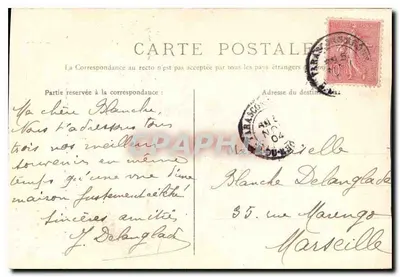 CARTE POSTALE
La Correspondance au recto n'est pas acceptée par tous les pays étrangers
Partie réservée à la correspondance :
Adresse du destinataire
Ma chère Blanche,
Nous t'adressons tous
trois nos meilleurs
souvenirs en même
temps qu'une vue d'une
maison
Sincères amitiés
J. Delanglade
Blanche Delanglade
35, rue Marengo
Marseille
TARASCON
04